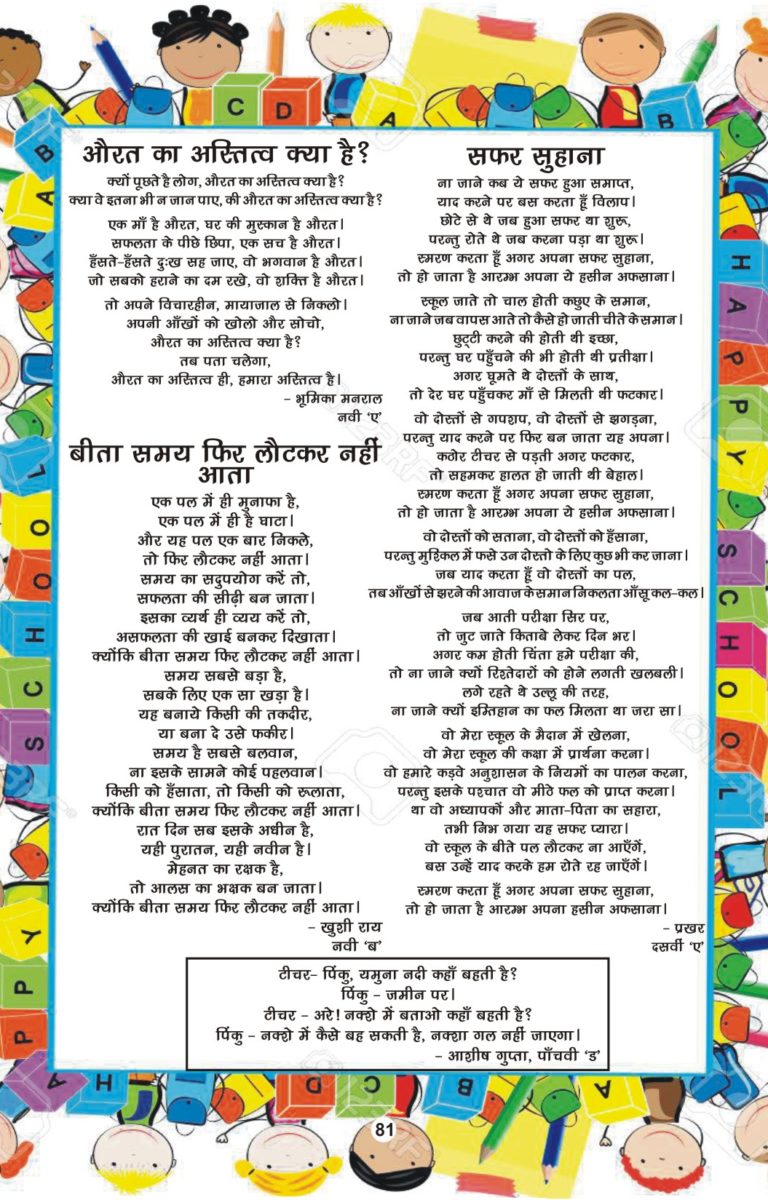 औरत का अस्तित्व क्या है?
क्यों पूछते है लोग, औरत का अस्तित्व क्या है?
क्या वे इतना भी न जान पाए, की औरत का अस्तित्व क्या है?
एक माँ है औरत, घर की मुस्कान है औरत।
सफलता के पीछे छिपा, एक सच है औरत।
हँसते-हँसते दुःख सह जाए, वो भगवान है औरत।
जो सबको हराने का दम रखे, वो शक्ति है औरत।
तो अपने विचारहीन, मायाजाल से निकलो।
अपनी आँखों को खोलो और सोचो,
औरत का अस्तित्व क्या है?
तब पता चलेगा,
औरत का अस्तित्व ही, हमारा अस्तित्व है।
– भूमिका मनराल
नवी ‘ए’
बीता समय फिर लौटकर नहीं
आता
एक पल में ही मुनाफा है,
एक पल में ही है घाटा।
और यह पल एक बार निकले,
तो फिर लौटकर नहीं आता।
समय का सदुपयोग करें तो,
सफलता की सीढ़ी बन जाता।
इसका व्यर्थ ही व्यय करें तो,
असफलता की खाई बनकर दिखाता।
क्योंकि बीता समय फिर लौटकर नहीं आता।
समय सबसे बड़ा है,
सबके लिए एक सा खड़ा है।
यह बनाये किसी की तकदीर,
या बना दे उसे फकीर।
समय है सबसे बलवान,
ना इसके सामने कोई पहलवान।
किसी को हँसाता, तो किसी को रुलाता,
क्योंकि बीता समय फिर लौटकर नहीं आता।
रात दिन सब इसके अधीन है,
यही पुरातन, यही नवीन है।
मेहनत का रक्षक है,
तो आलस का भक्षक बन जाता।
क्योंकि बीता समय फिर लौटकर नहीं आता।
– खुशी राय
नवी ‘ब’
सफर सुहाना
ना जाने कब ये सफर हुआ समाप्त,
याद करने पर बस करता हूँ विलाप।
छोटे से थे जब हुआ सफर था शुरू,
परन्तु रोते थे जब करना पड़ा था शुरू।
स्मरण करता हूँ अगर अपना सफर सुहाना,
तो हो जाता है आरम्भ अपना ये हसीन अफसाना।
स्कूल जाते तो चाल होती कछुए के समान,
ना जाने जब वापस आते तो कैसे हो जाती चीते के समान।
छुट्टी करने की होती थी इच्छा,
परन्तु घर पहुँचने की भी होती थी प्रतीक्षा।
अगर घूमते थे दोस्तों के साथ,
तो देर घर पहुँचकर माँ से मिलती थी फटकार।
वो दोस्तों से गपशप, वो दोस्तों से झगड़ना,
परन्तु याद करने पर फिर बन जाता यह अपना।
कठोर टीचर से पड़ती अगर फटकार,
तो सहमकर हालत हो जाती थी बेहाल।
स्मरण करता हूँ अगर अपना सफर सुहाना,
तो हो जाता है आरम्भ अपना ये हसीन अफसाना।
वो दोस्तों को सताना, वो दोस्तों को हँसाना,
परन्तु मुश्किल में फसे उन दोस्तो के लिए कुछ भी कर जाना।
जब याद करता हूँ वो दोस्तों का पल,
तब आँखों से झरने की आवाज के समान निकलता आँसू कल-कल।
जब आती परीक्षा सिर पर,
तो जुट जाते किताबे लेकर दिन भर।
अगर कम होती चिंता हमे परीक्षा की,
तो ना जाने क्यों रिश्तेदारों को होने लगती खलबली।
लगे रहते थे उल्लू की तरह,
ना जाने क्यों इम्तिहान का फल मिलता था जरा सा।
वो मेरा स्कूल के मैदान में खेलना,
वो मेरा स्कूल की कक्षा में प्रार्थना करना।
वो हमारे कड़वे अनुशासन के नियमों का पालन करना,
परन्तु इसके पश्चात वो मीठे फल को प्राप्त करना।
था वो अध्यापकों और माता-पिता का सहारा,
तभी निभ गया यह सफर प्यारा।
वो स्कूल के बीते पल लौटकर ना आएँगें,
बस उन्हें याद करके हम रोते रह जाएँगें।
स्मरण करता हूँ अगर अपना सफर सुहाना,
तो हो जाता है आरम्भ अपना हसीन अफसाना।
– प्रखर
दसवीं ‘ए’
टीचर– पिंकु, यमुना नदी कहाँ बहती है?
पिंकु – जमीन पर।
टीचर – अरे! नक्शे में बताओ कहाँ बहती है?
पिंकु – नक्शे में कैसे बह सकती है, नक्शा गल नहीं जाएगा।
– आशीष गुप्ता, पाँचवी ‘ड’
81